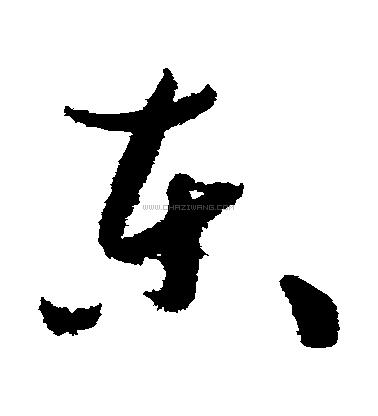 东
WWW.CHAZIWANG.COM